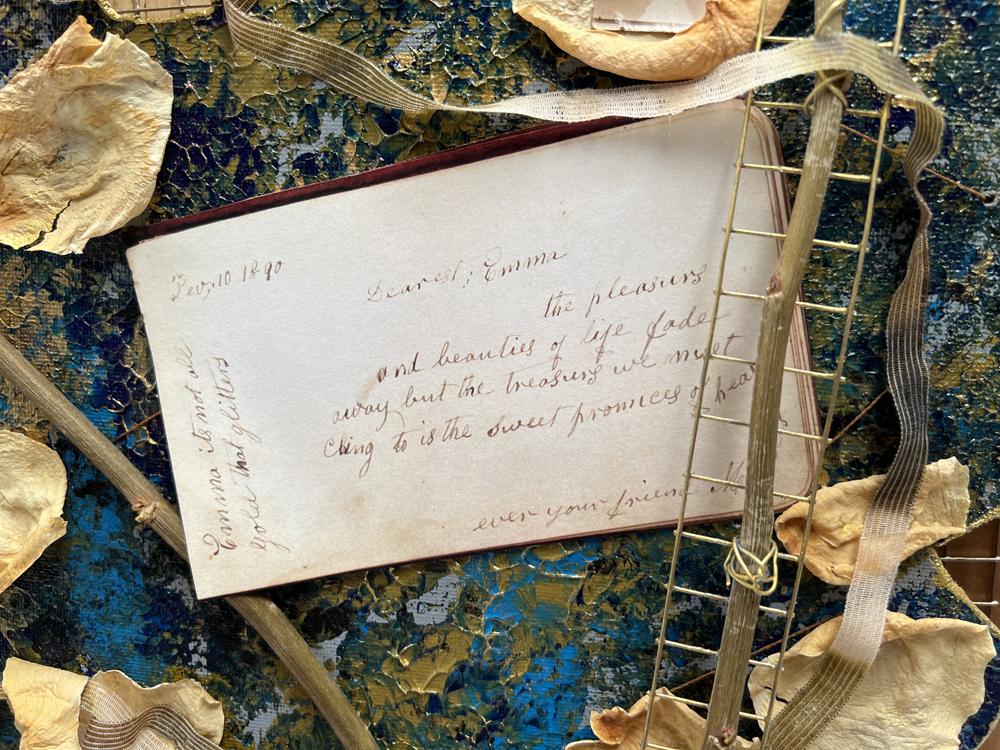 Fev, 10 1890
Dearest, Emma
the pleasure
and beauties of life fade
away but the treasure we must
cling to is the sweet promices of
ever your friend
Emma its not all
gold that glitters